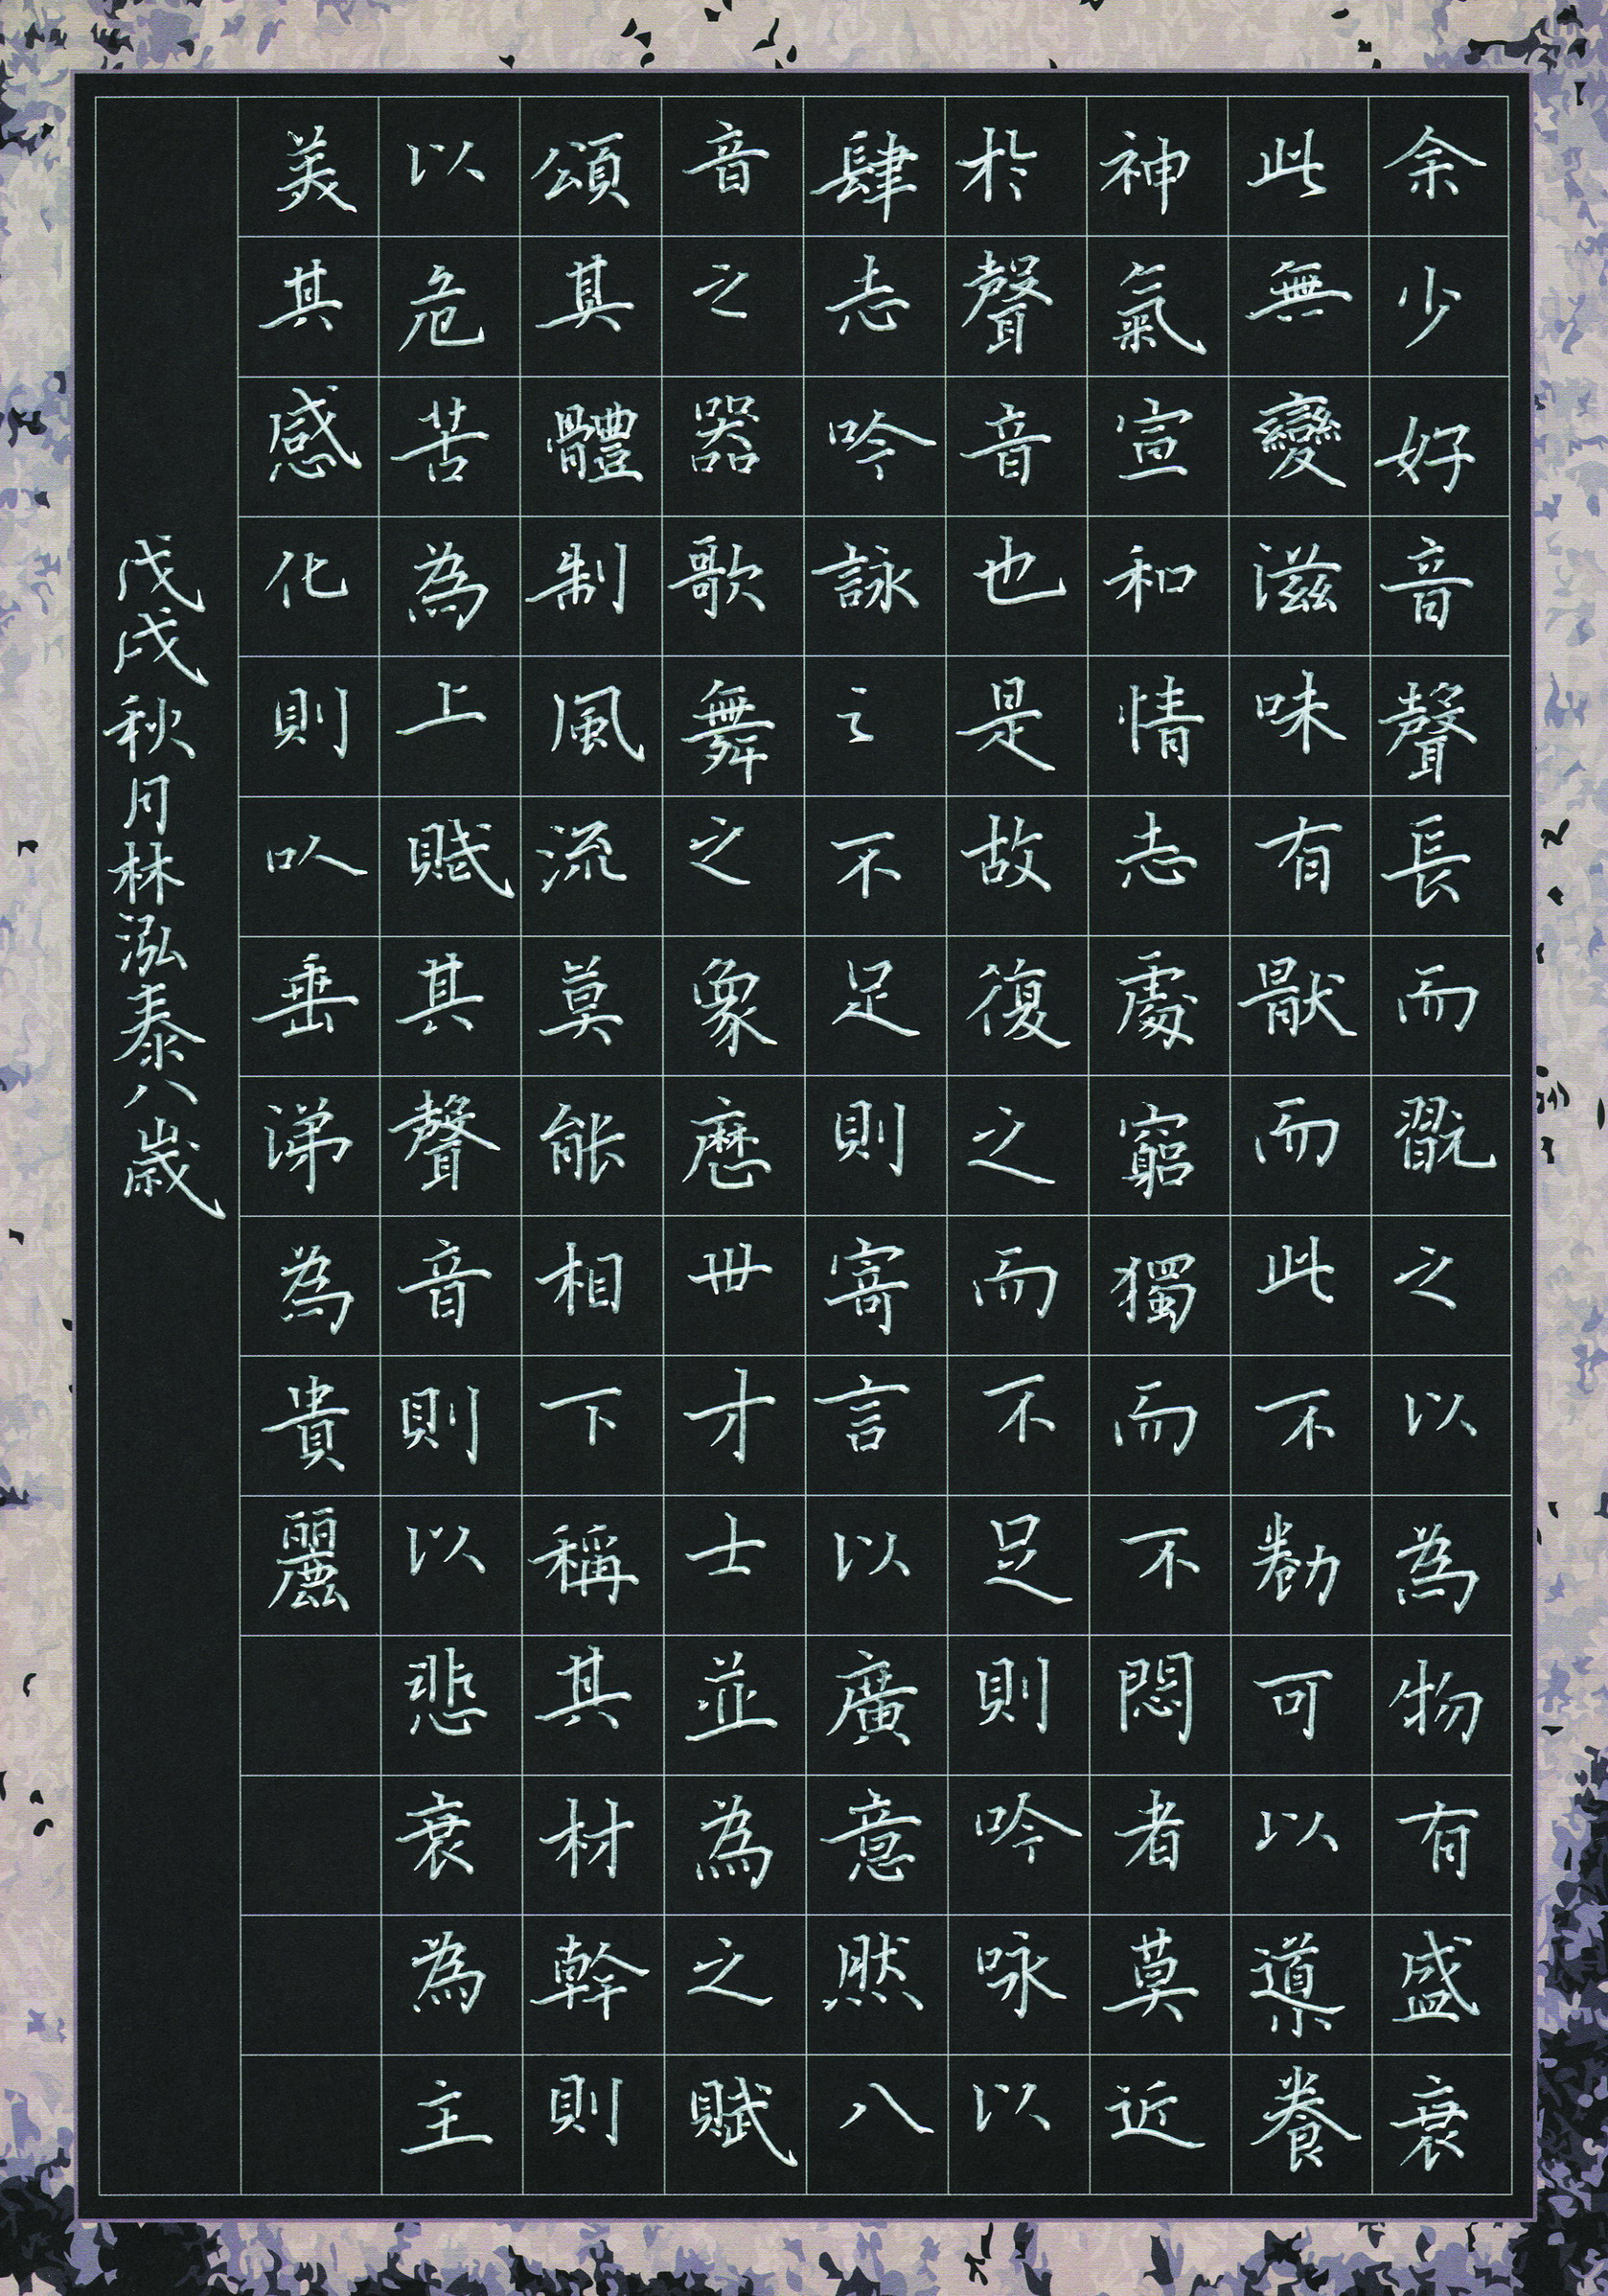 余少好音聲長而翫之以為物有盛衰
此無變滋味有猒而此不勌可以導養
神氣宣和情志處窮獨而不悶者莫近
於聲音也是故復之而不足則吟咏以
肆志吟詠之不足則寄言以廣意然八
音之器歌舞之象歷世才士並為之賦
頌其體制風流莫能相下稱其材幹則
以危苦為上賦其聲音則以悲哀為主
美其感化則以垂涕為貴麗
戊戌秋月林泓泰八歲